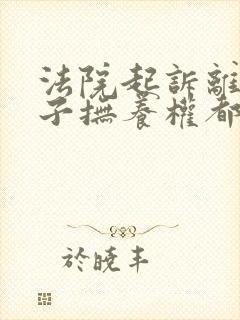 法院起訴離
子撫養權都
於曉丰